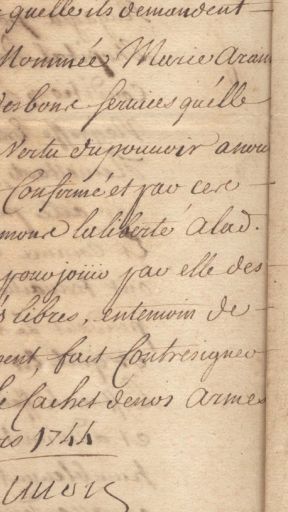 quelle ils demandent
Nommée Marie Aram
des bons services qu'elle
Vertu du pouvoir a nou
Confirmé et par ces
mons la liberté a lad.
pour jouir par elle des
s libres, en temoin de
fait Contresigner
le Cachet de nos Armes
1744